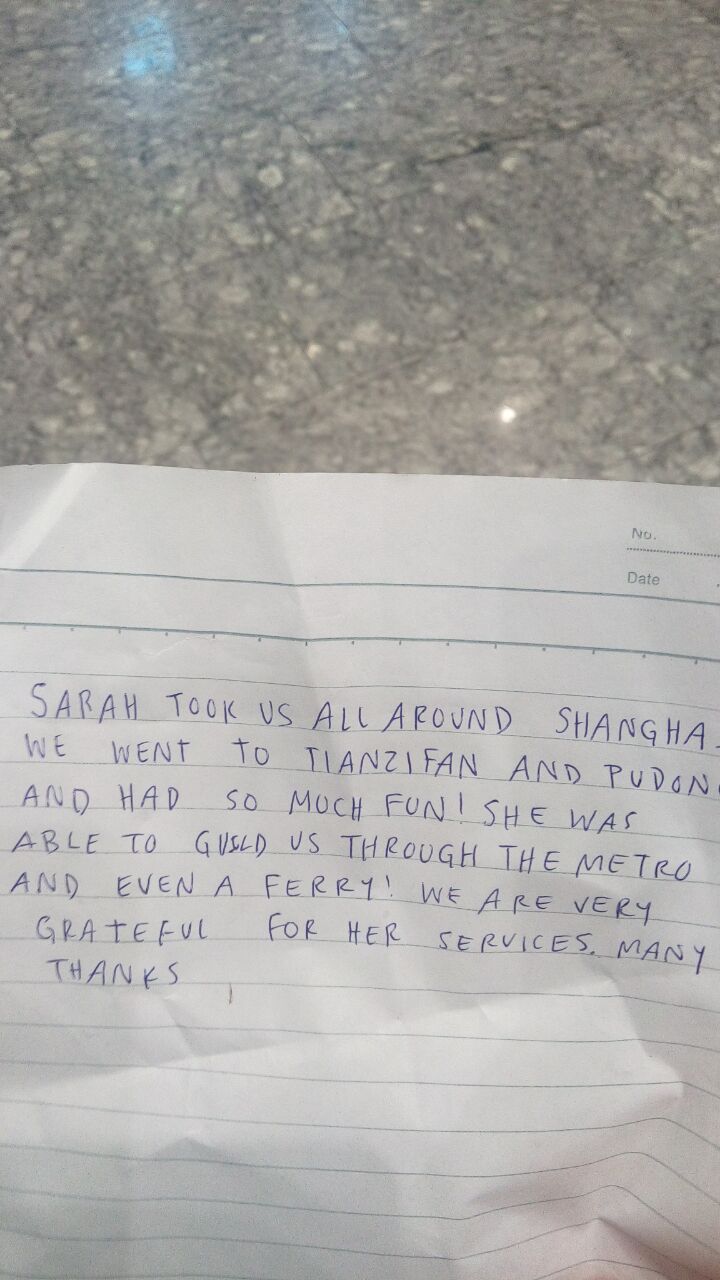 No.
Date
SARAH TOOK US ALL AROUND SHANGHA
WE WENT TO TIANZIFAN AND PUDON
AND HAD SO MUCH FUN! SHE WAS
ABLE TO GUILD US THROUGH THE METRO
AND EVEN A FERRY! WE ARE VERY
GRATEFUL FOR HER SERVICES. MANY
THANKS